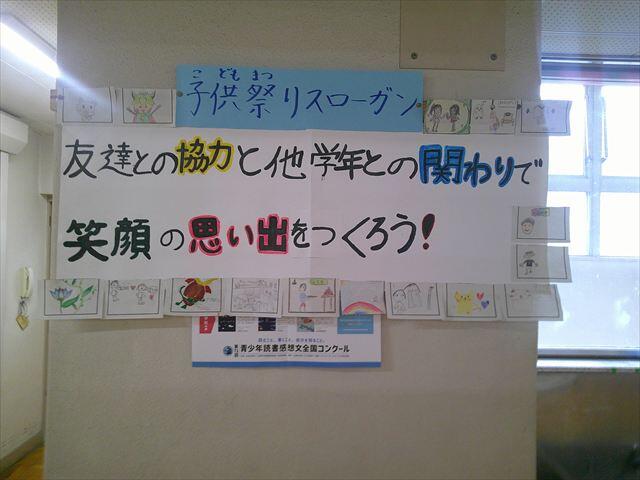 こ ども まつ
子供祭りスローガン
友達との協力と他学年との関わりで
笑顔の思い出をつくろう!
青少年読書感想文全国コンクール